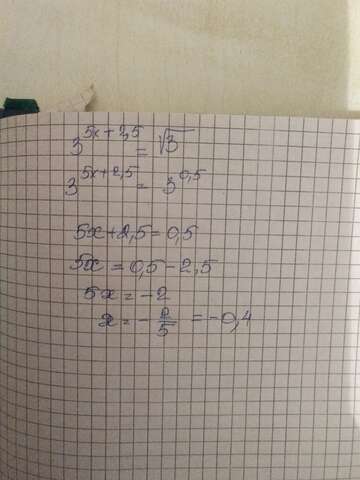 3^{5x+2,5} = √3
3^{5x+2,5} = 3^{0,5}
5x+2,5=0,5
5x = 0,5-2,5
5x = -2
x = -2/5 = -0,4